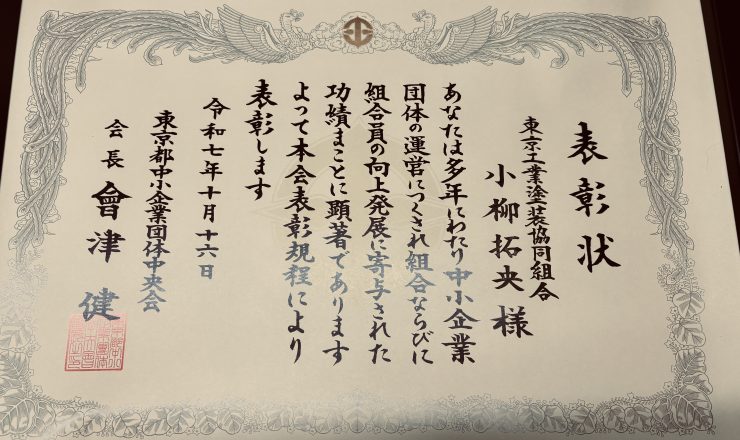 表彰状
東京工業塗装協同組合
小柳拓央様
あなたは多年にわたり中小企業
団体の運営につくされ組合ならびに
組合員の向上発展に寄与された
功績まことに顕著であります
よって本会表彰規程により
表彰します
令和七年十月十六日
東京都中小企業団体中央会
会長會津健